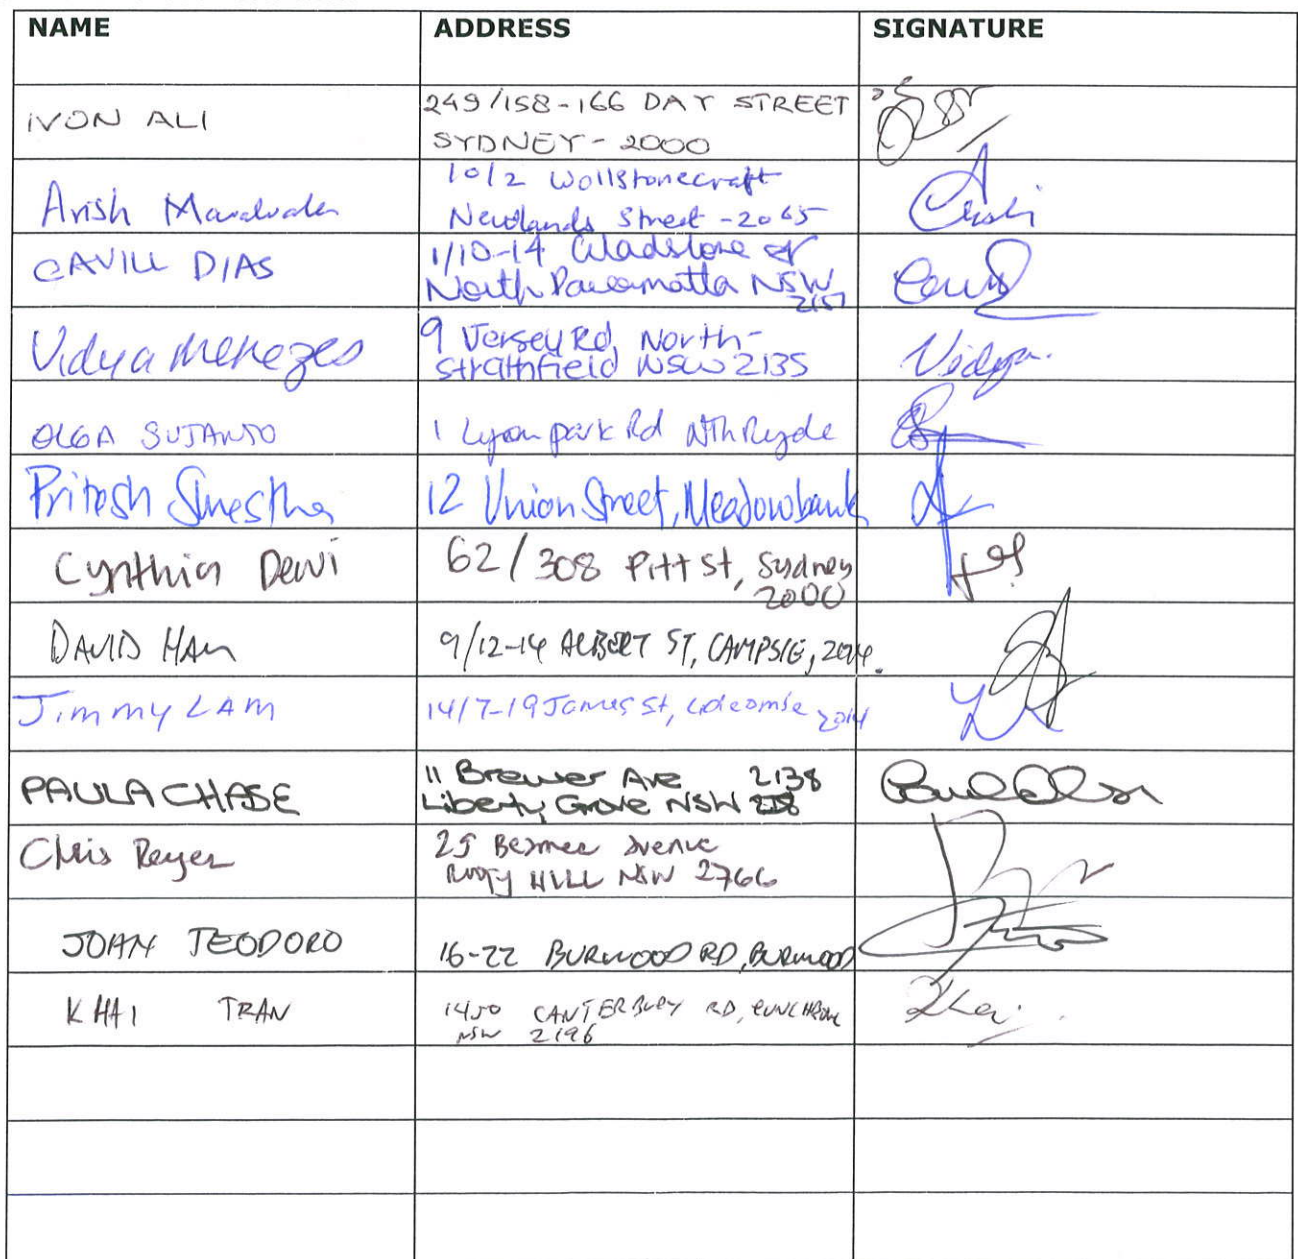 NAME ADDRESS SIGNATURE
IVON ALI 249/158-166 DAY STREET
SYDNEY - 2000
Arish 10/2 Wollstonecraft
Newlands Street - 2065
CAVILL DIAS 1/10-14 Gladstone st
North Parramatta NSW
2151
Vidya Menezes 9 Jersey Rd, North-
Strathfield NSW 2135 Vidya.
OLGA SUTANTO 1 Lyon park Rd Nth Ryde
Pritesh Shrestha 12 Union Street, Meadowbank
Cynthia Dewi 62/308 Pitt St, Sydney
2000
DAVID HAN 9/12-14 ALBERT ST, CAMPSIE, 2194.
Jimmy LAM 14/7-19 James St, Lidcombe 2014
PAULA CHASE 11 Brewer Ave 2138
Liberty Grove NSW
Chris Reyes 25 Avenue
Rooty HILL NSW 2766
JOAN TEODORO 16-22 BURWOOD RD, BURWOOD
KHAI TRAN 1450 CANTERBURY RD, PUNCHBOWL Khai
NSW 2196